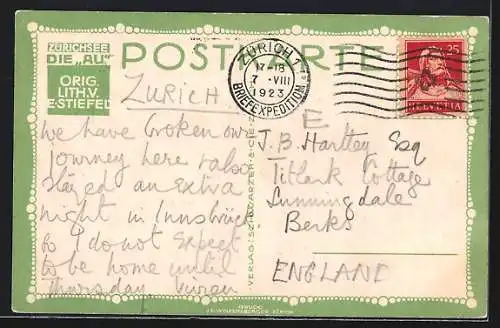 ZÜRICHSEE
DIE „AU"
ORIG.
LITH.V.
E.STIEFEL
POSTKARTE
ZÜRICH 1
17-18
7.-VIII
1923
BRIEFEXPEDITION
25
HELVETIA
ZURICH
E
We have broken our
journey here & also
stayed an extra
night in Innsbrück
so I do not expect
to be home until
Thursday Vivien
J.B. Hartley Esq
Titlark Cottage
Sunningdale
Berks
ENGLAND
VERLAG: SCHWARZER & CIE
DRUCK